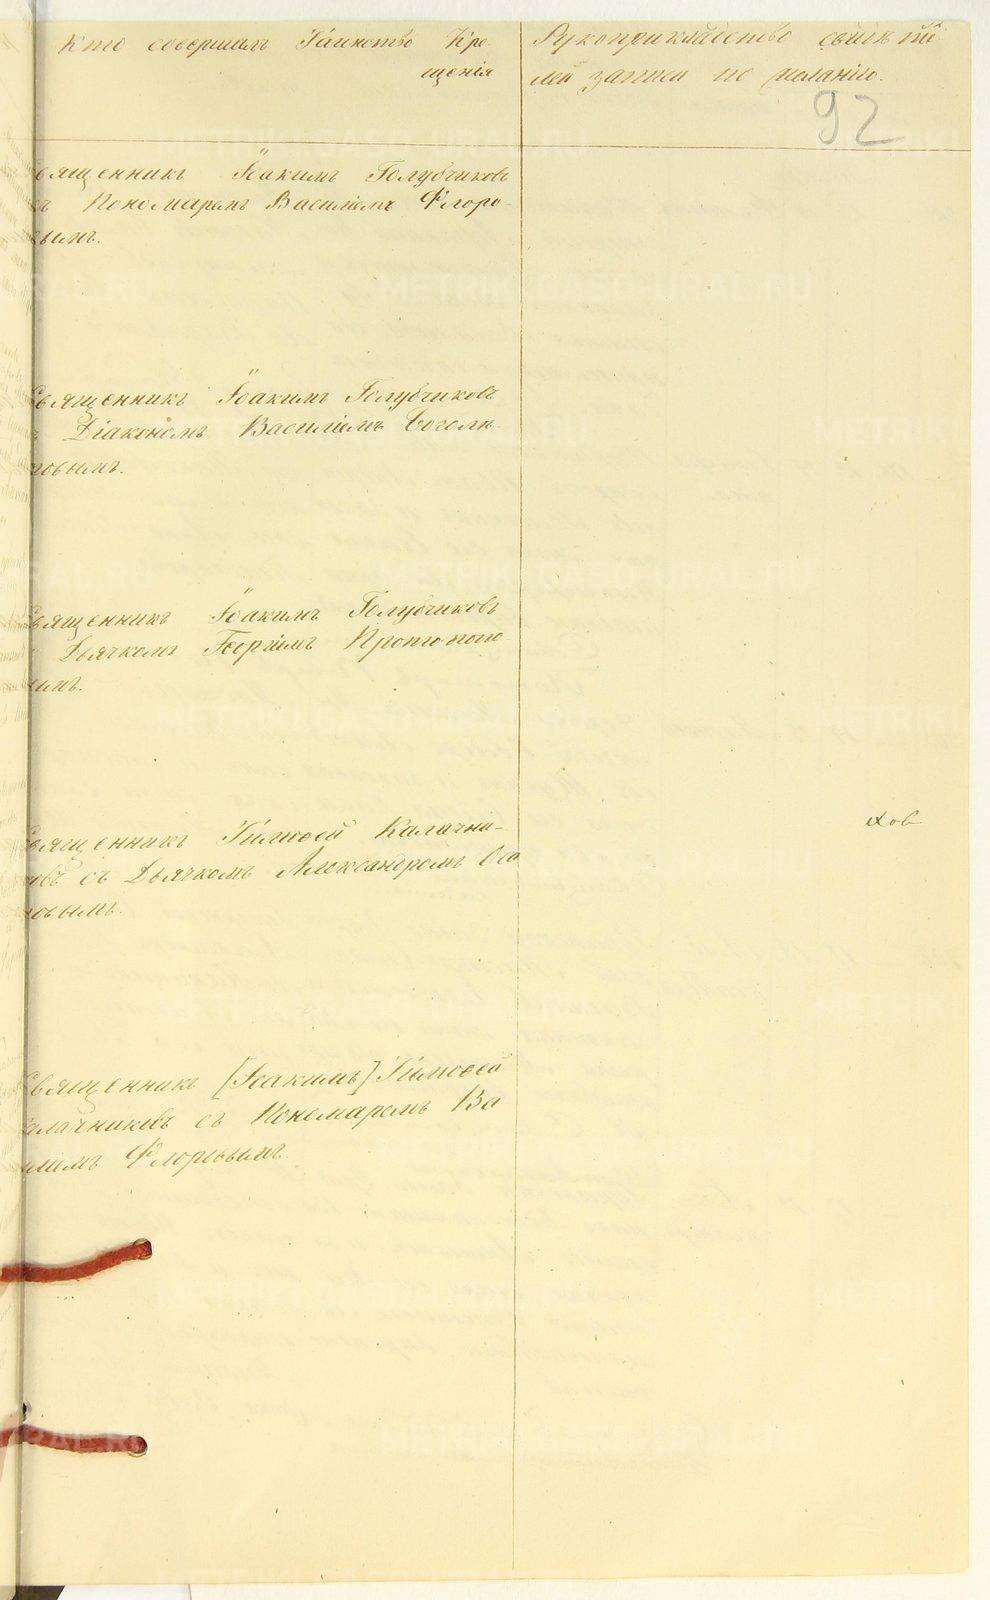 Кто совершалъ Таинство Кре
щенія
Рукоприкладство свидѣте
лей записи по желанію.
92
Священникъ Іоакимъ Голубчиковъ
съ Пономаремъ Василіемъ Флоро-
вымъ.
Священникъ Іоакимъ Голубчиковъ
съ Діакономъ Василіемъ Боголю
повымъ.
Священникъ Іоакимъ Голубчиковъ
Дьячкомъ Георгіемъ Протопопо
вымъ.
Священникъ Тимоѳей Калачни-
ковъ съ Дьячкомъ Александромъ Осо
новымъ.
ховъ
Священникъ [Іоакимъ] Тимоѳей
Калачниковъ съ Пономаремъ Ва
силіемъ Флоровымъ.
METRIKI.GASO-URAL.RU